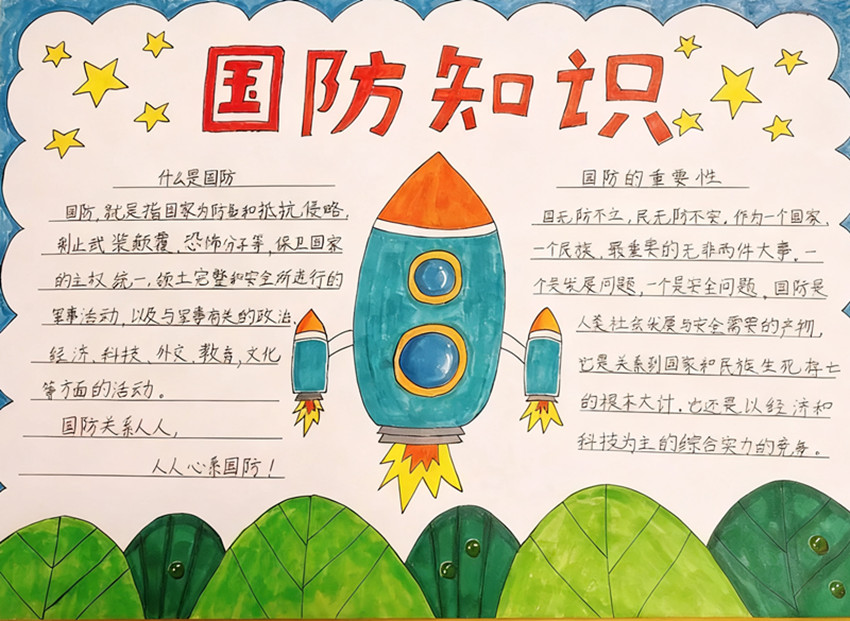 国防知识
什么是国防
国防,就是指国家为防备和抵抗侵略,
制止武装颠覆、恐怖分子等,保卫国家
的主权统一,领土完整和安全所进行的
军事活动,以及与军事有关的政治,
经济、科技、外交、教育,文化
等方面的活动。
国防关系人人,
人人心系国防!
国防的重要性
国无防不立,民无防不安,作为一个国家,
一个民族,最重要的无非两件大事,一
个是发展问题,一个是安全问题。国防是
人类社会发展与安全需要的产物,
它是关系到国家和民族生死存亡
的根本大计,也还是以经济和
科技为主的综合实力的竞争。